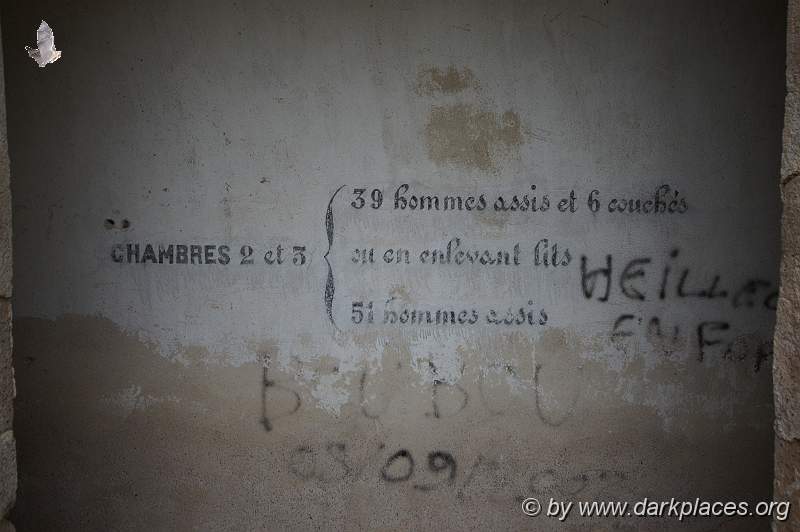 39 hommes assis et 6 couchés
CHAMBRES 2 et 3 { ou en enlevant lits
51 hommes assis
HEILLEC
EN FOR
03/09/
© by www.darkplaces.org